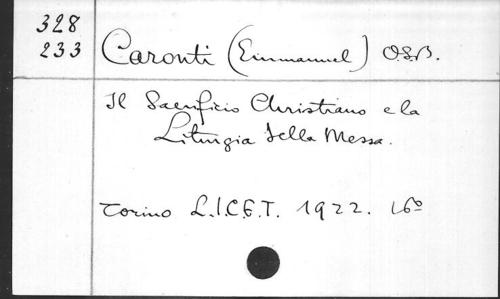 328
233
Caronti (Emmanuel) O.S.B.
Il Sacrificio Christiano e la
Liturgia della Messa.
Torino L.I.C.E.T. 1922. 16º